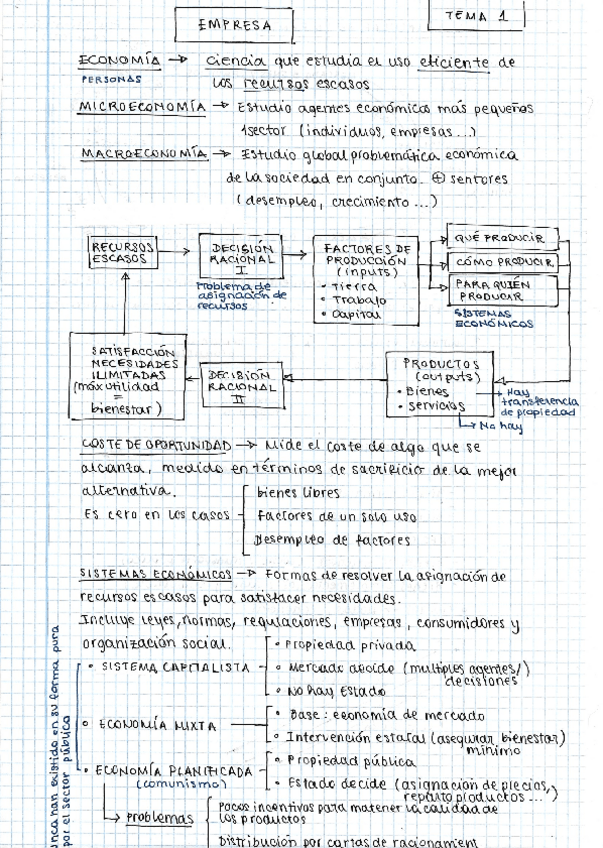 EMPRESA
TEMA 1
ECONOMÍA → ciencia que estudia el uso eficiente de
PERSONAS
los recursos escasos
MICROECONOMÍA → Estudio agentes económicos más pequeños
1 sector (individuos, empresas...)
MACROECONOMÍA → Estudio global problemática económica
de la sociedad en conjunto. ⊕ sectores
(desempleo, crecimiento...)
RECURSOS
ESCASOS
DECISIÓN
RACIONAL
I
Problema de
asignación de
recursos
FACTORES DE
PRODUCCIÓN
(inputs)
• Tierra
• Trabajo
• Capital
QUÉ PRODUCIR
CÓMO PRODUCIR
PARA QUIÉN
PRODUCIR
SISTEMAS
ECONÓMICOS
PRODUCTOS
(outputs)
• Bienes → Hay
transferencia
de propiedad
• Servicios
→ No hay
DECISIÓN
RACIONAL
II
SATISFACCIÓN
NECESIDADES
ILIMITADAS
(máx utilidad
=
bienestar)
COSTE DE OPORTUNIDAD → Mide el coste de algo que se
alcanza, medido en términos de sacrificio de la mejor
alternativa.
Es cero en los casos
bienes libres
Factores de un solo uso
Desempleo de factores
SISTEMAS ECONÓMICOS → Formas de resolver la asignación de
recursos escasos para satisfacer necesidades.
Incluye leyes, normas, regulaciones, empresas, consumidores y
organización social.
• SISTEMA CAPITALISTA
• Propiedad privada
• Mercado decide (multiples agentes/)
decisiones
• No hay Estado
• ECONOMÍA MIXTA
• Base: economía de mercado
• Intervención estatal (asegurar bienestar)
mínimo
• ECONOMÍA PLANIFICADA
(comunismo)
• Propiedad pública
• Estado decide (asignación de precios,
reparto productos...)
→ problemas
Pocos incentivos para matener la calidad de
los productos
Distribución por cartas de racionamient
unca han existido en su forma pura
por el sector público